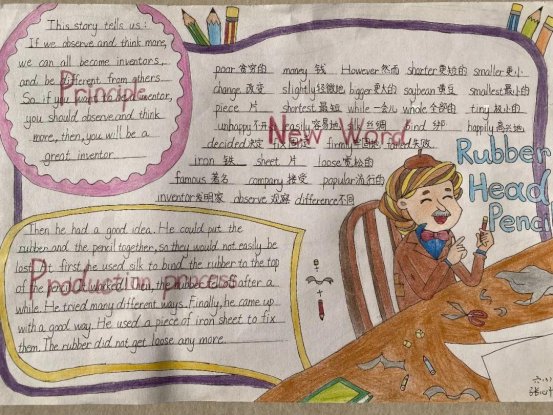 This story tells us:
If we observe and think more,
we can all become inventors,
and be different from others
So if you want to be a inventor,
you should observe and think
more, then, you will be a
great inventor
Principle
poor 贫穷的 money 钱 However 然而 shorter 更短的 smaller 更小
change 改变 slightly 轻微地 bigger 更大的 soybean 黄豆 smallest 最小的
piece 片 shortest 最短 while 一会儿 whole 全部的 tiny 极小的
unhappy 不开 easily 容易地 silk 丝绸 bind 绑 happily 高兴地
decided 决定 fix 固定 firmly 牢固地 failed 失败
iron 铁 sheet 片 loose 宽松的
famous 著名 company 接受 popular 流行的
inventor 发明家 observe 观察 difference 不同
New Word
Rubber
Head
Pencil
Then he had a good idea. He could put the
rubber and the pencil together, so they would not easily be
lost. At first, he used silk to bind the rubber to the top
of the pencil. It worked. But the rubber fell off after a
while. He tried many different ways. Finally, he came up
with a good way. He used a piece of iron sheet to fix
them. The rubber did not get loose any more.
Production process